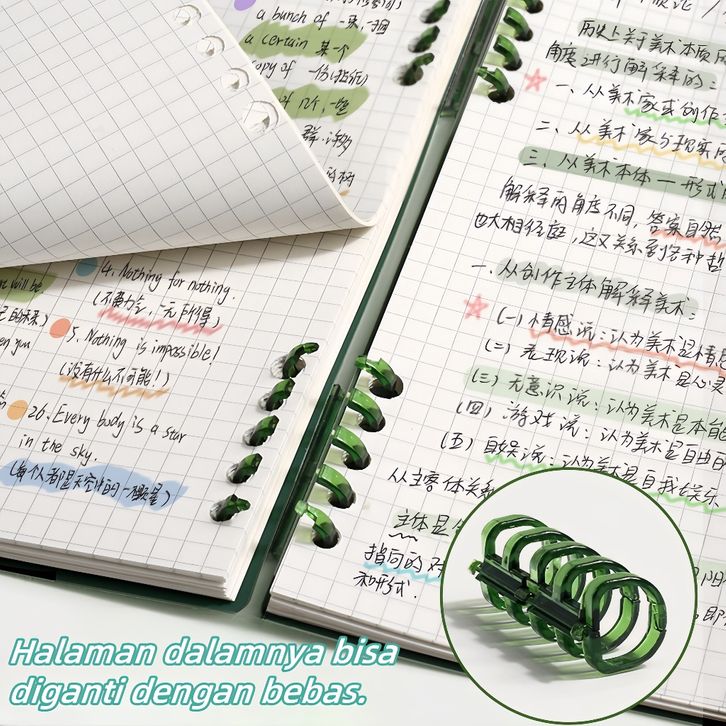 a bunch of 一束,一团
a certain 某一个
copy of 一份(报纸)
of 几个,一些
群.许多
will be
4. Nothing for nothing.
(不费力气,一无所得)
5. Nothing is impossible!
(没有什么不可能!)
26. Every body is a star
in the sky.
(每个人都是天空中的一颗星)
历史上关于美术本质
角度进行解释的:
一、从美术家来创作
二、从美术家与现实
三、从美术本体一形式
解释的角度不同,答案自然
也大相径庭,这又关系
一.从创作主体解释美术:
(一)情感说:认为美术是情感
(二)表现说:认为美术是心灵
(三)无意识说:认为美术是本能
(四)游戏说:认为美术是自由的
(五)自娱说:认为美术是自我娱乐
从主客体关系
主体是
指向的对
和形式.
Halaman dalamnya bisa
diganti dengan bebas.